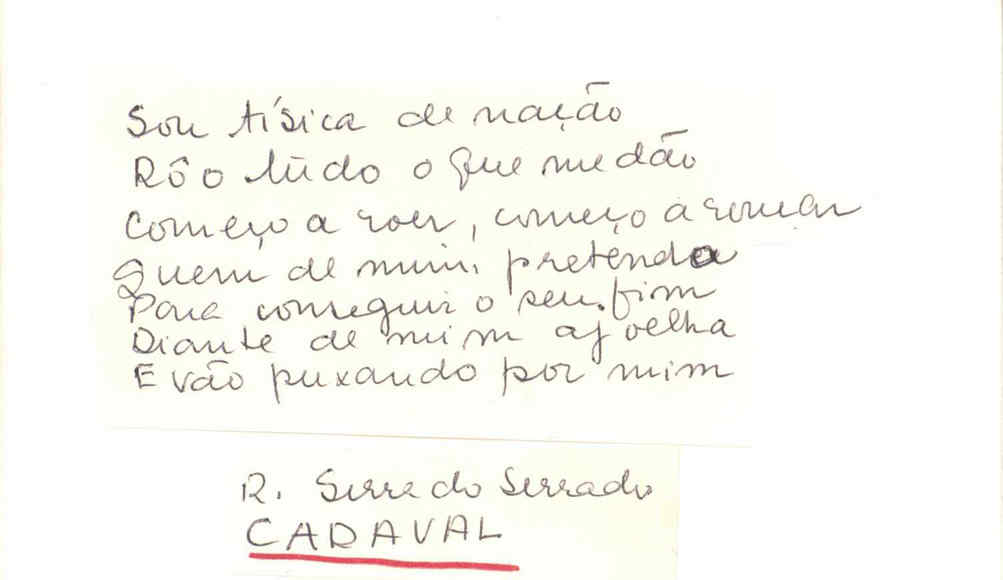 Sou tísica de nação
Rôo tudo o que me dão
Começo a roer, começo a roncar
Quem de mim, pretenda
Para conseguir o seu fim
Diante de mim ajoelha
E vão puxando por mim
R. Serra do Serrado
CADAVAL